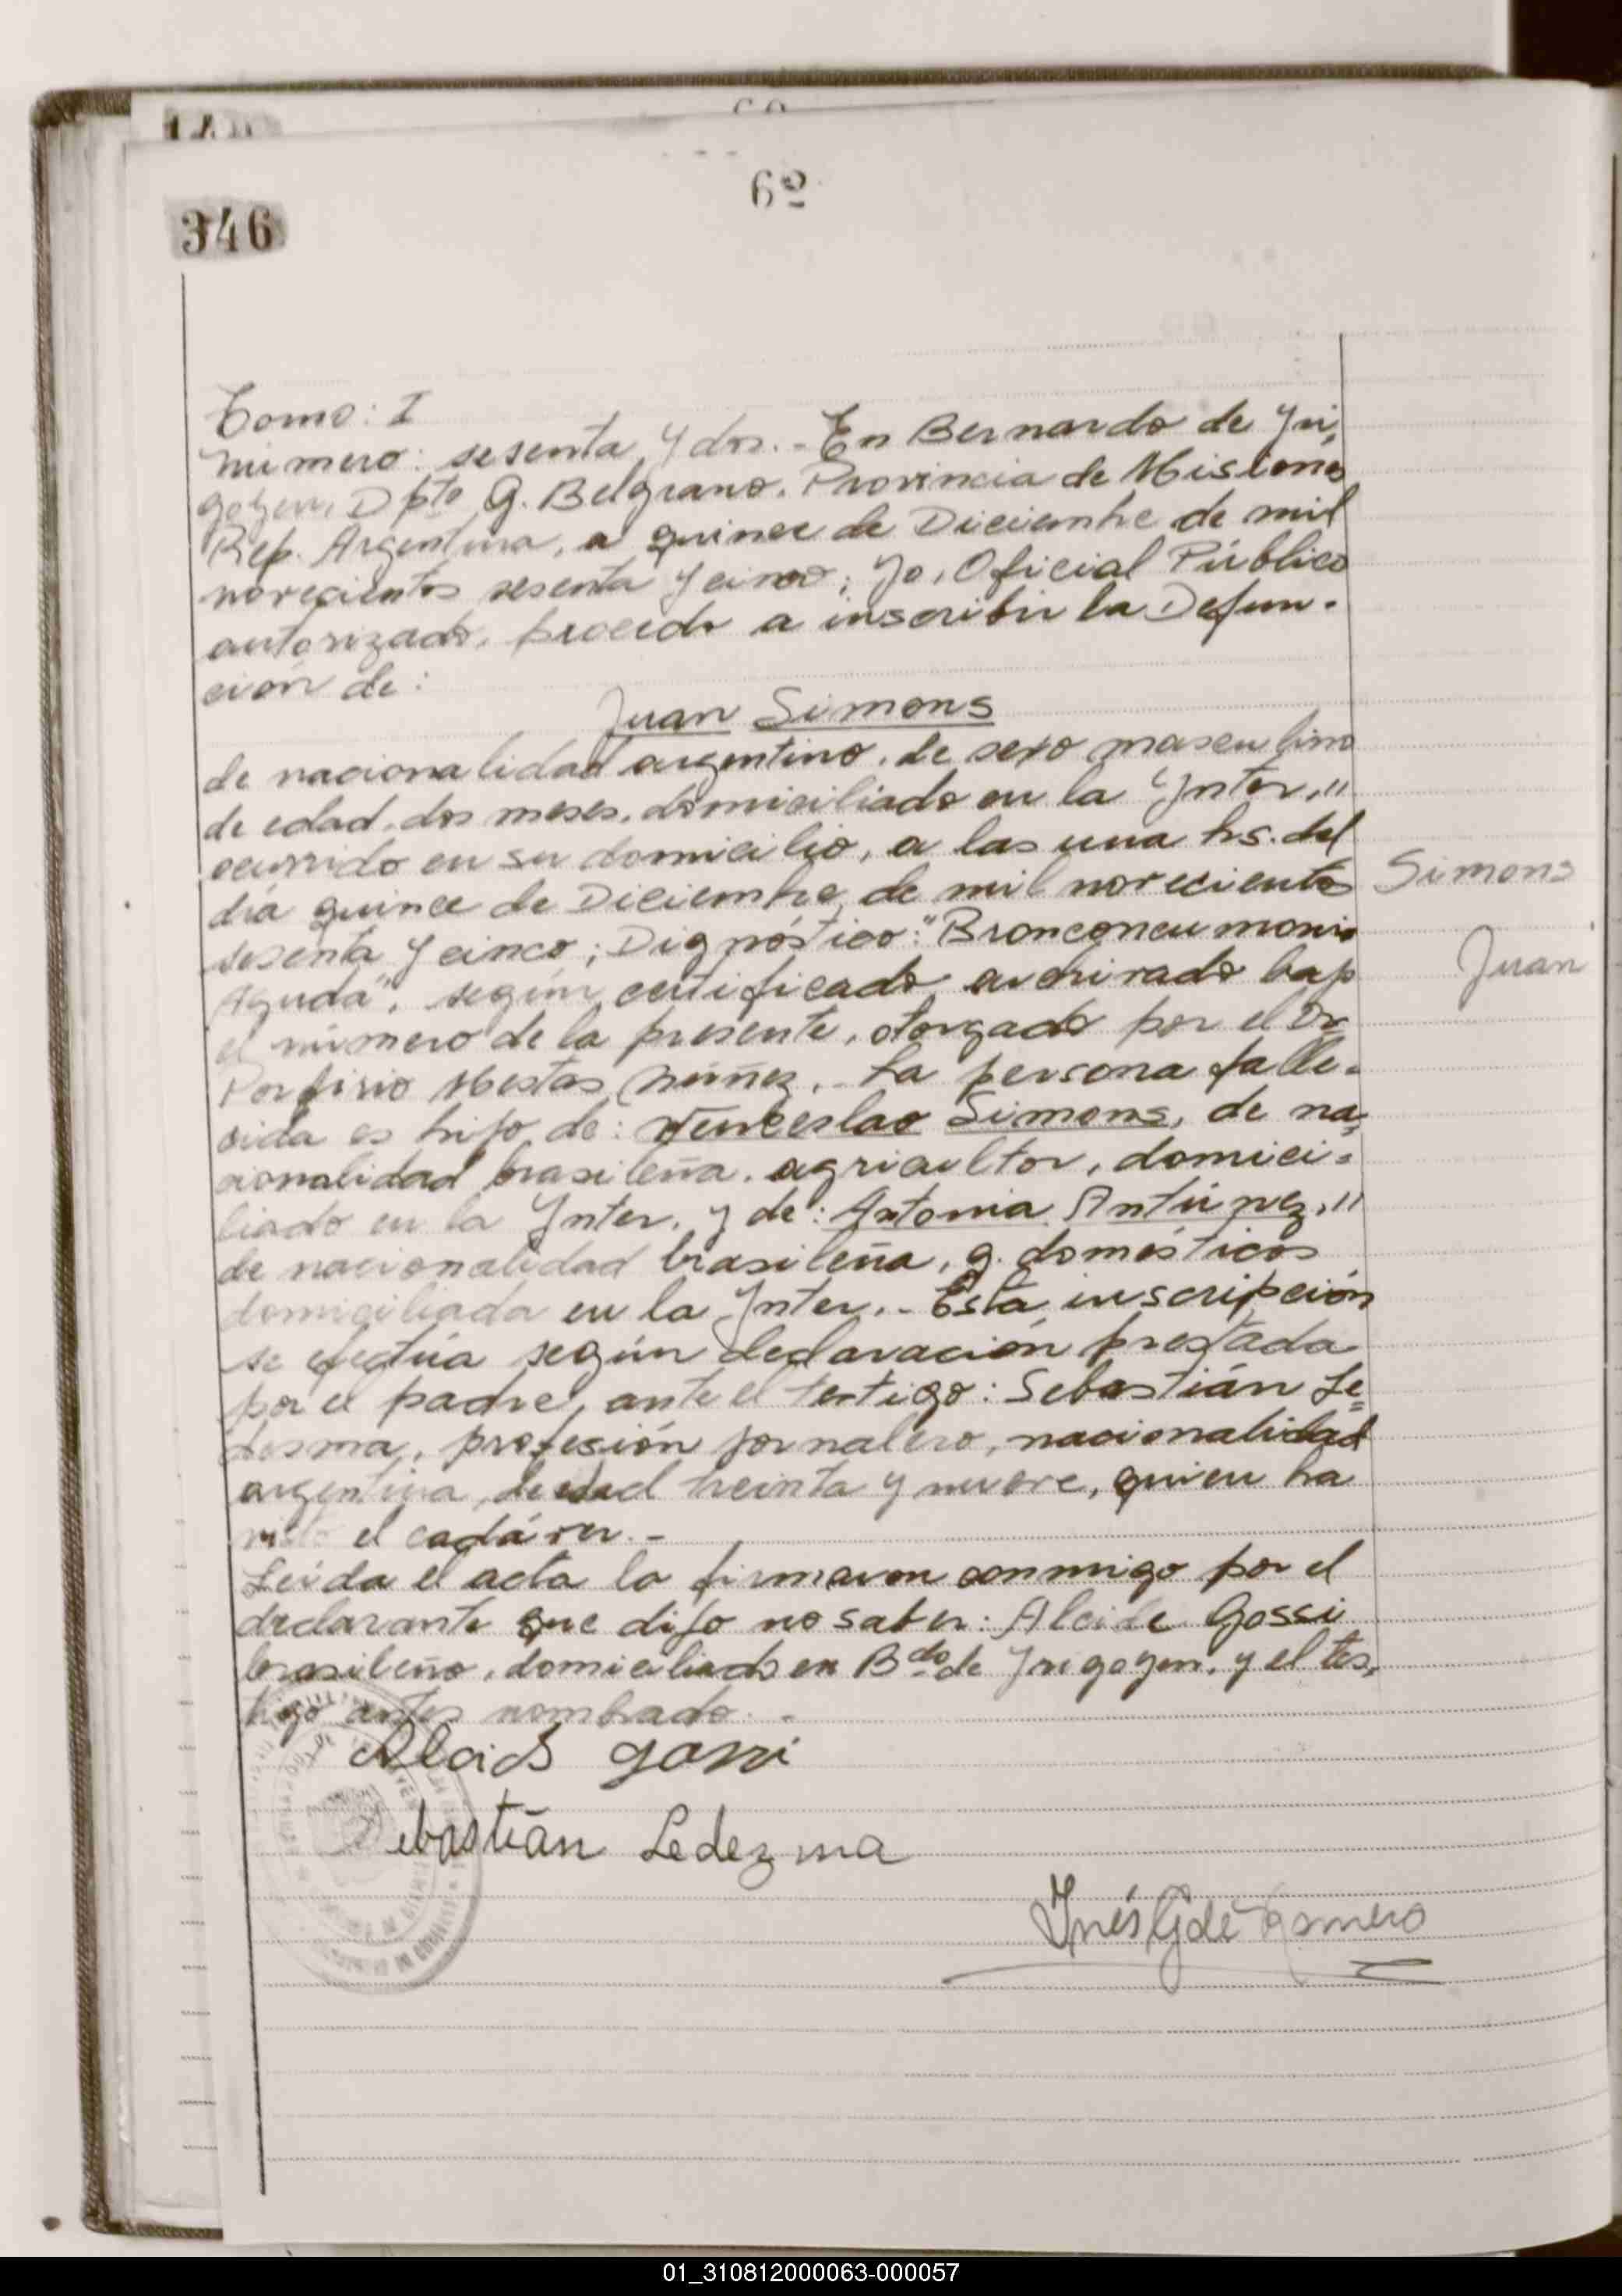 6º
346
Tomo: I
número: sesenta y dos.- En Bernardo de Yri,
goyen, Dpto G. Belgrano. Provincia de Misiones
Rep. Argentina, a quince de Diciembre de mil
novecientos sesenta y cinco; Yo, Oficial Público
autorizado, procedo a inscribir la Defun-
ción de:
Juan Simons
de nacionalidad argentino, de sexo masculino
de edad, dos meses, domiciliado en la Inter, "
ocurrido en su domicilio, a las una hs. del
día quince de Diciembre de mil novecientos
sesenta y cinco; Dignóstico: "Bronconeumonia
Aguda", según certificado archivado bajo
el número de la presente, otorgado por el Dr
Porfirio Mestas Núñez.- La persona falle=
cida es hijo de: Wenceslao Simons, de na,
cionalidad brasileña, agricultor, domici=
liado en la Inter. y de: Antonia Antúnez, "
de nacionalidad brasileña, q. domésticos
domiciliada en la Inter.- Esta inscripción
se efectúa según declaración prestada
por el padre, ante el testigo: Sebastián Le=
desma, profesión jornalero, nacionalidad
argentina, de edad treinta y nueve, quien ha
visto el cadáver.-
Leída el acta la firmaron conmigo por el
declarante que dijo no saber: Alcide Gossi
brasileño, domiciliado en Bdo de Yrigoyen, y el tes,
tigo antes nombrado.-
Simons
Juan
Alcids Gossi
Sebastián Ledezma
Inés G de Romero
01_310812000063-000057